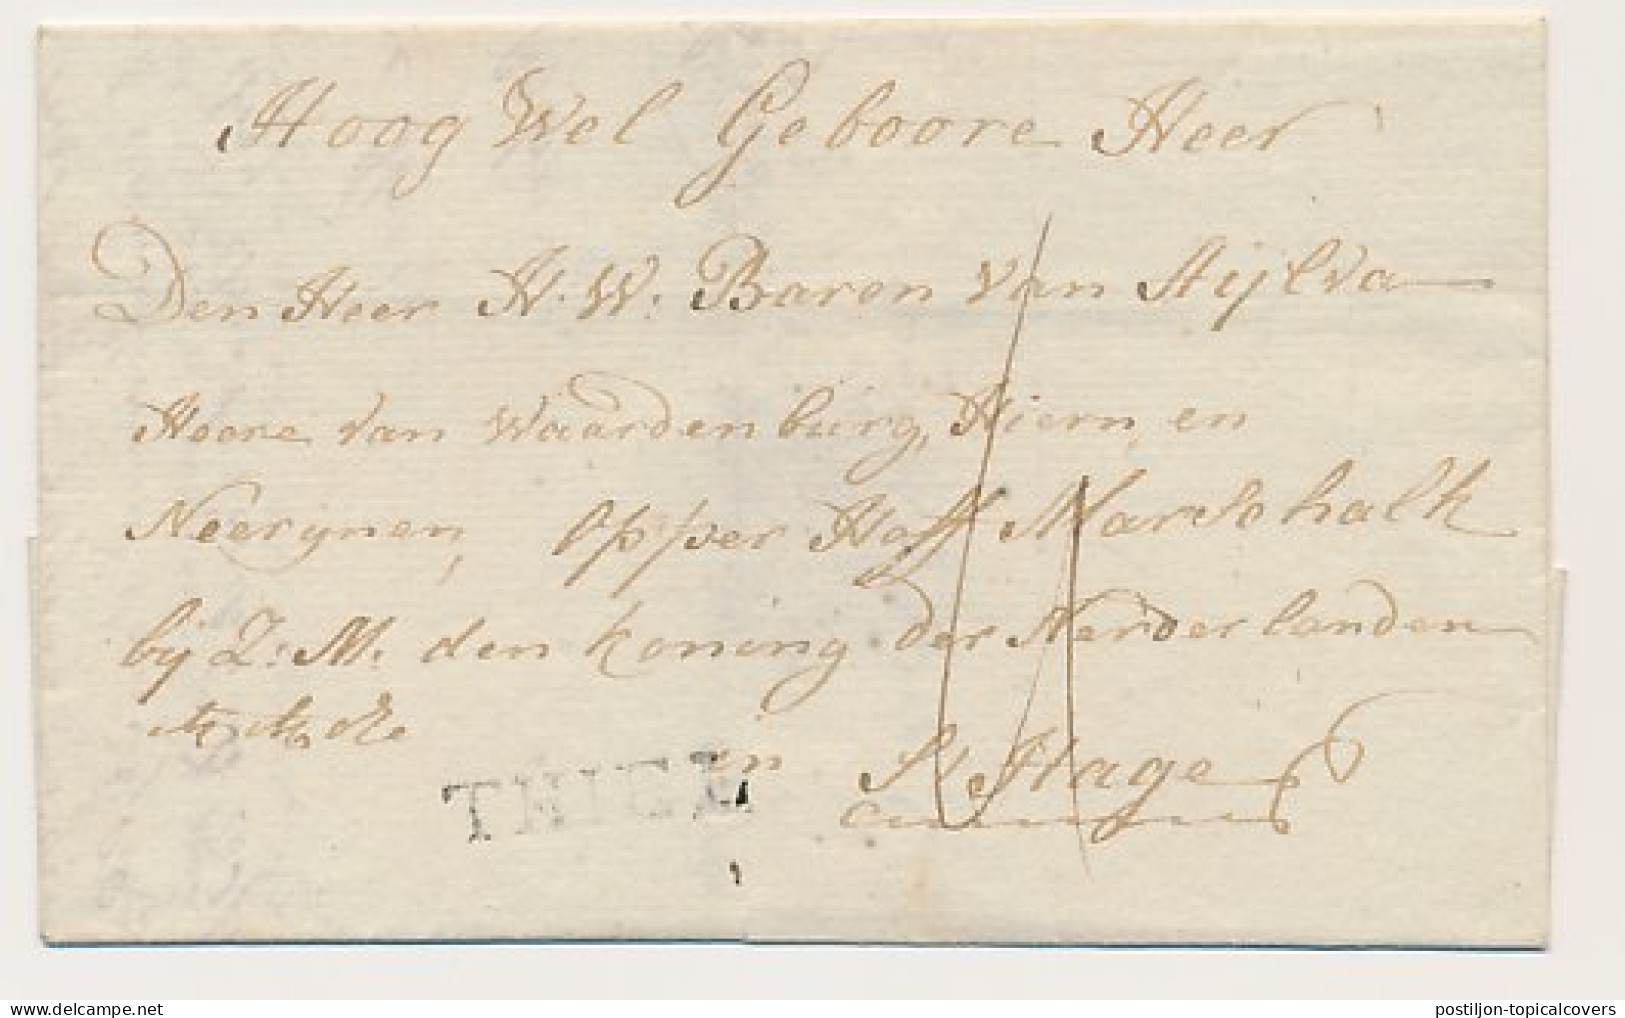 Hoog Wel Geboore Heer
Den Heer H. W. Baron van Aijlva
Heere van Waardenburg, Hiern, en
Neerijnen, Opper Hoff Marschalk
bij Z: M: den koning der Nederlanden
in
S. Hage
THIEL
postiljon-topicalcovers